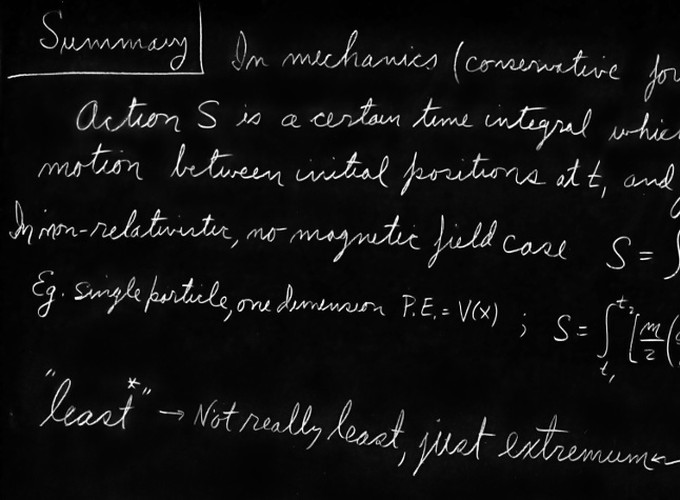 Summary In mechanics (conservative for
Action S is a certain time integral which
motion between initial positions at t₁ and
In non-relativistic, no magnetic field case S = ∫
Eg. single particle, one dimension P.E. = V(x) ; S = ∫ₜ₁ᵗ² [m/2 (
"least*" → Not really least, just extremum ←